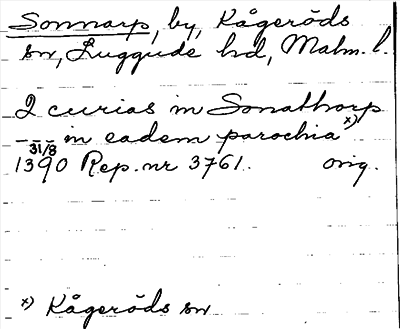 Sonnarp, by, Kågeröds
sn, Luggude hd, Malm. l.
2 curias in Sonathorp
--- in eadem parochia x)
31/8
1390 Rep. nr 3761. orig.
x) Kågeröds sn